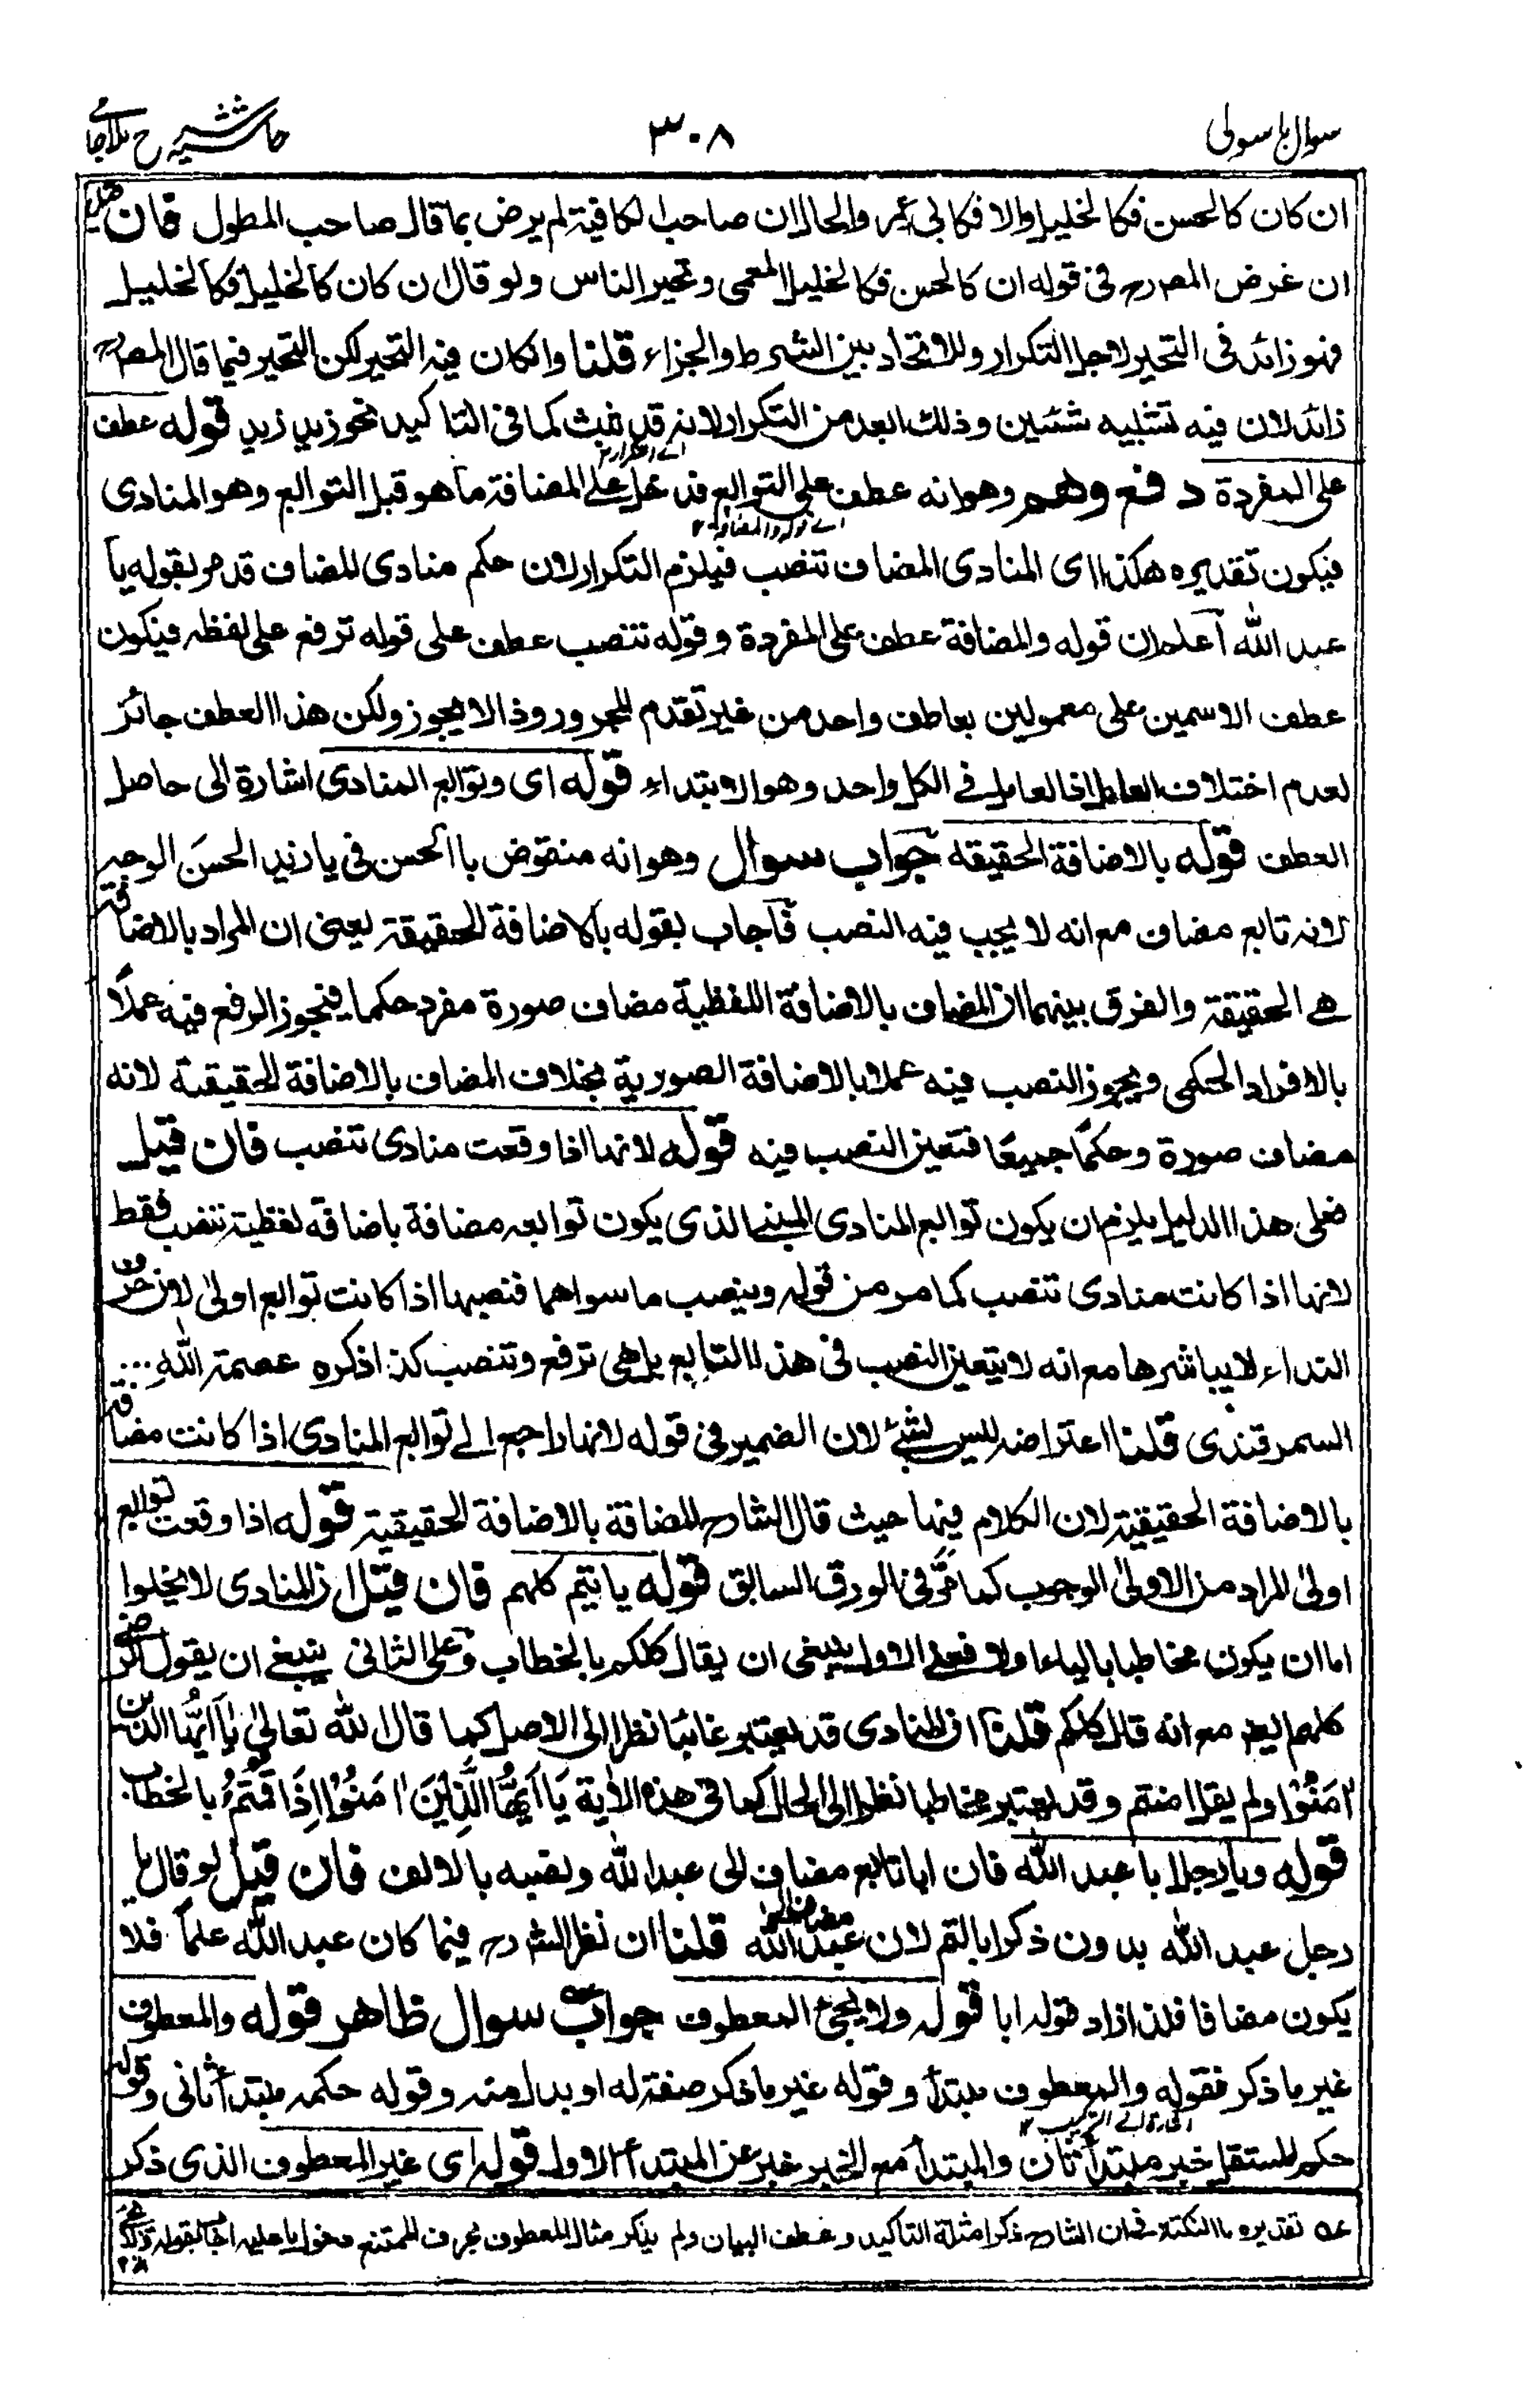 سوال باسولی
٣٠٨
حاشیہ شرح ملا جامے
ان كان كالحسن فكالخليل والا فكابى عمر والحال ان صاحب الكافية لم يرض بما قال صاحب المطول فان قيل
ان غرض المصرح فى قوله ان كالحسن فكالخليل المعمى وتحير الناس ولو قال ان كان كالخليل فكالخليل
فهو زائد فى التحير لاجل التكرار وللاتحاد بين الشرط والجزاء قلنا وان كان فيه التحير لكن التحير فيما قال المصرح
زائد لان فيه تشبيه شئين وذلك ابعد من التكرار لانه قد يثبث كما فى التاكيد نحو زيد زيد قوله عطف
اے التكرار
على المفردة دفع وهم وهو انه عطف على التوابع فدخل على المضافة ما هو قبل التوابع وهو المنادى
اے قوله والمضافة
فيكون تقديره هكذا اى المنادى المضاف تنصب فيلزم التكرار لان حكم منادى المضاف قد مر بقوله يا
عبد الله آعلم ان قوله والمضافة عطف على المفردة وقوله تنصب عطف على قوله ترفع على لفظه فيكون
عطف الاسمين على معمولين بعاطف واحد من غير تقدم المجرور وذا لا يجوز ولكن هذا العطف جائز
لعدم اختلاف العامل اذ العامل فے الكل واحد وهو الابتداء قوله اى وتوابع المنادى اشارة الى حاصل
العطف قوله بالاضافة الحقيقه جواب سوال وهو انه منقوض باالحسن فى يا زيد الحسن الوجه
لانه تابع مضاف مع انه لا يجب فيه النصب فآجاب بقوله بالاضافة الحقيقة يعنى ان المراد بالاضافة
هے الحقيقة والفرق بينهما ان المضاف بالاضافة اللفظية مضاف صورة مفرد حكما فيجوز الرفع فيه عملا
بالافراد الحكمى ويجوز النصب فيه عملا بالاضافة الصورية بخلاف المضاف بالاضافة الحقيقية لانه
مضاف صورة وحكما جميعا فتعين النصب فيه قوله لانها اذا وقعت منادى تنصب فان قيل
فعلى هذا الدليل يلزم ان يكون توابع المنادى المبنى الذى يكون توابعه مضافة باضافة لفظية تنصب فقط
لانها اذا كانت منادى تنصب كما مر من قوله وينصب ما سواهما فنصبها اذا كانت توابع اولى لان حرف
النداء لا يباشرها مع انه لا يتعين النصب فى هذا التابع بل هى ترفع وتنصب كذا ذكره عصمة الله
السمرقندى قلنا اعتراضه ليس بشئ لان الضمير فى قوله لانها راجع الے توابع المنادى اذا كانت مضافة
بالاضافة الحقيقية لان الكلام فيها حيث قال الشارح المضافة بالاضافة الحقيقية قوله اذا وقعت توابع
اولى المراد من الاولى الوجوب كما مر فى الورق السابق قوله يا تيم كلهم فان قيل ان المنادى لا يخلوا
اما ان يكون مخاطبا بالياء اولا فعلى الاول ينبغى ان يقال كلكم بالخطاب وعلى الثانى ينبغے ان يقول
كلهم مع انه قال كلكم قلنا ان المنادى قد يعتبر غائبا نظرا الى الاصل كما قال الله تعالى يا ايها الذين
امنوا ولم يقل امنتم وقد يعتبر مخاطبا نظرا الى الحال كما فى هذه الأية يا ايها الذين امنوا اذا قمتم بالخطاب
قوله ويا رجل ابا عبد الله فان ابا تابع مضاف الى عبد الله ونصبه بالالف فان قيل لو قال يا
رجل عبد الله بدون ذكر ابا لتم لان عبد الله مضاف قلنا ان نظر الشارح فيما كان عبد الله علما فلا
يكون مضافا فلذا زاد قوله ابا قوله ولا يجئ المعطوف جواب سوال ظاهر قوله والمعطوف
غير ما ذكر فقوله والمعطوف مبتدأ وقوله غير ما ذكر صفة له او بدل منه وقوله حكمه مبتدأ ثانى وقوله
اشارة الے التركيب
حكم المستقل خبر مبتدأ ثان والمبتدأ مع الخبر خبر عن المبتدأ الاول قوله اى غير المعطوف الذى ذكر
عه تقديره ان الشارح ذكر امثلة التاكيد وعطف البيان ولم يذكر مثال المعطوف بحرف الممتنع دخول يا عليه بقوله